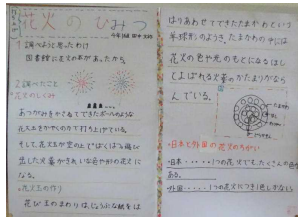 花火のひみつ
1 調べようと思ったわけ
図書館に花火の本があったから。
2 調べたこと
花火のしくみ
あつがみをかさねてできたボールのような
花火玉をかやくの力で打ち上げている。
そして、花火玉が空の上でばくはつする時に
出した火薬がきれいな色や形の花火に
なる。
花火玉の作り
花び玉のまわりは、じょうぶな紙をは
はりあわせてできたたまかわという
半球形のようき。たまかわの中には
花火の色や光のもとになるほし
とよばれる火薬のかたまりがなら
んでいる。
・日本と外国の花火のちがい
・日本・・・・・1つの花火でたくさんの色が
ある。
・外国・・・・・1つの花火につき1色しかない